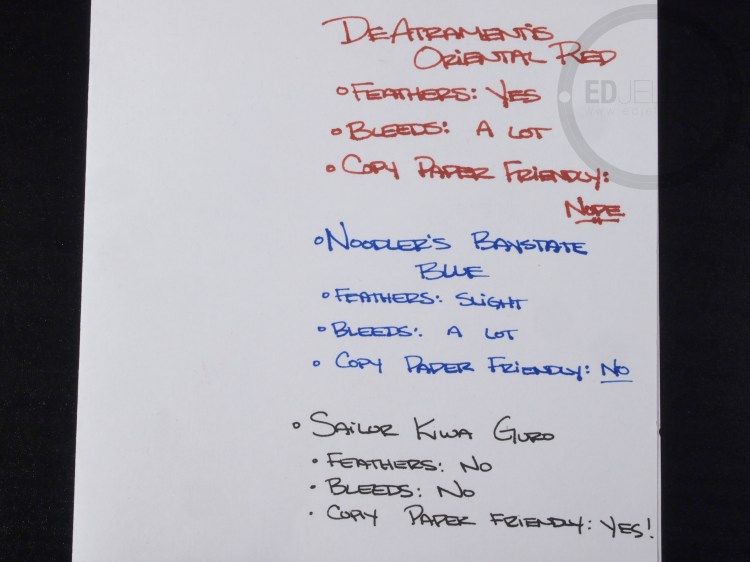 DeAtramentis
Oriental Red
• Feathers: Yes
• Bleeds: A lot
• Copy Paper Friendly:
Nope
• Noodler's Baystate
Blue
• Feathers: Slight
• Bleeds: A lot
• Copy Paper Friendly: No
• Sailor Kiwa Guro
• Feathers: No
• Bleeds: No
• Copy Paper Friendly: Yes!